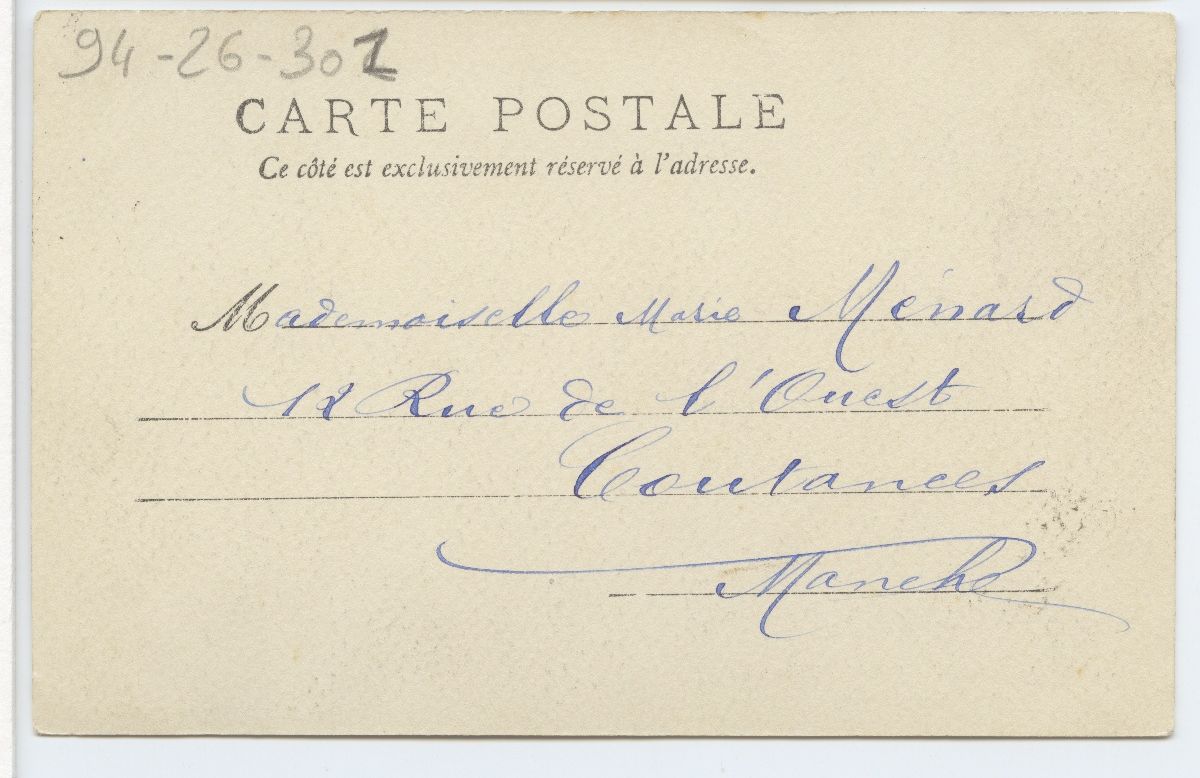 94-26-301
CARTE POSTALE
Ce côté est exclusivement réservé à l'adresse.
Mademoiselle Marie Ménard
12 Rue de l'Ouest
Coutances
Manche